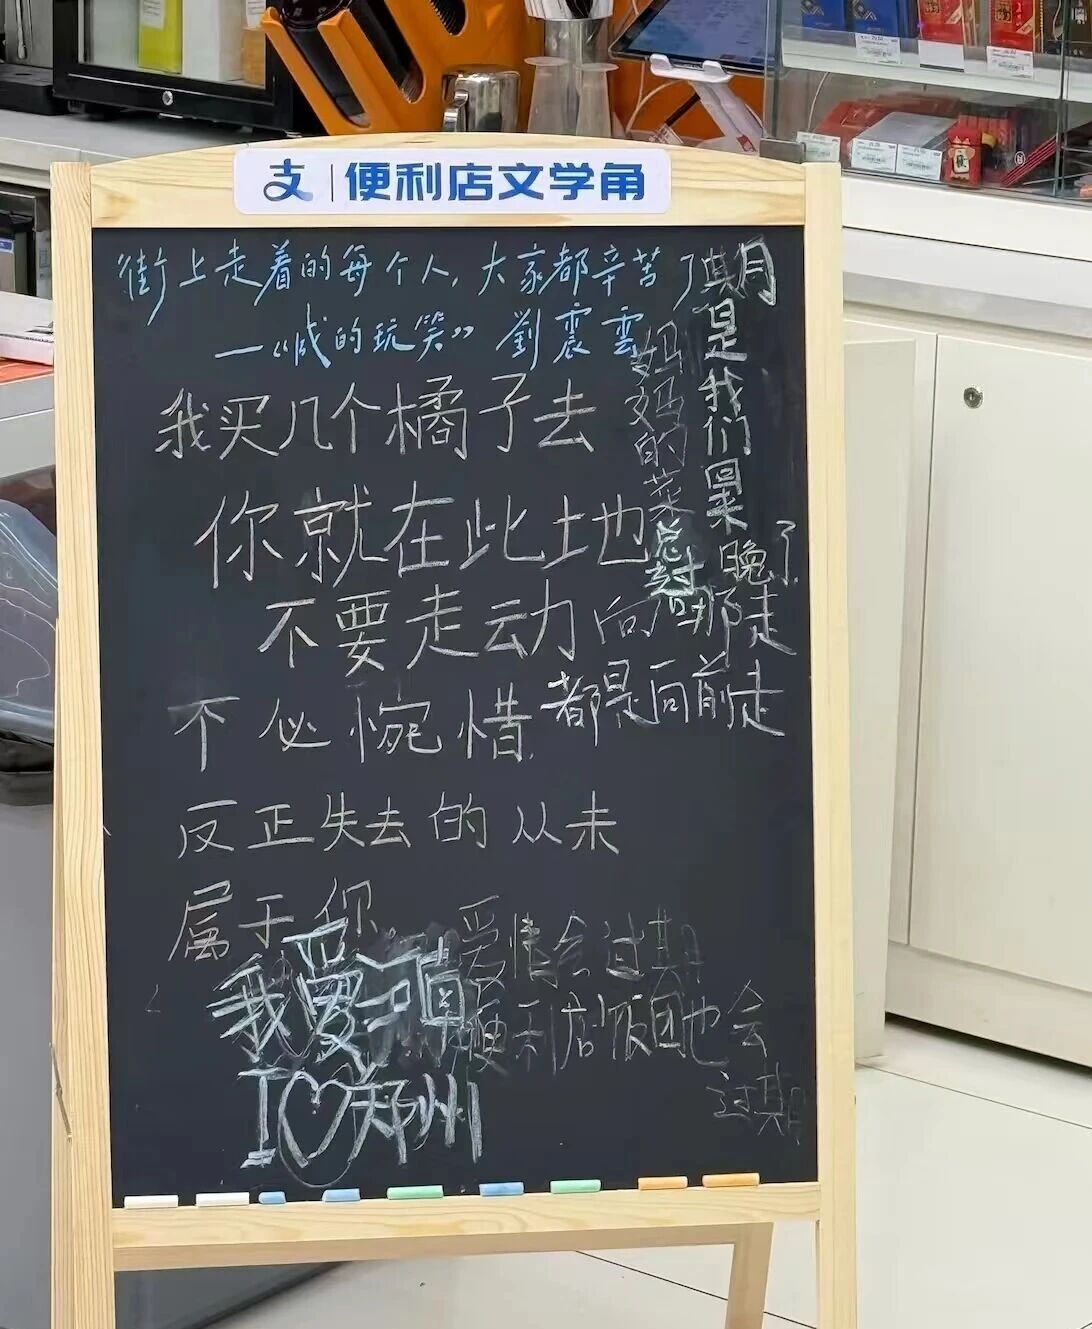 支 | 便利店文学角
街上走着的每个人，大家都辛苦了
—《咸的玩笑》 劉震雲
我买几个橘子去
你就在此地
不要走动
向哪走
都是向前走
不必惋惜
反正失去的从未
属于你
妈妈的菜
是我们
晚了
我爱
I♡郑州
爱情会过期
便利店饭团也会
过期